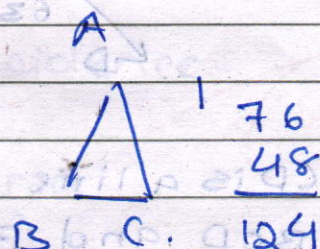 A
1
76
48
B C. 124